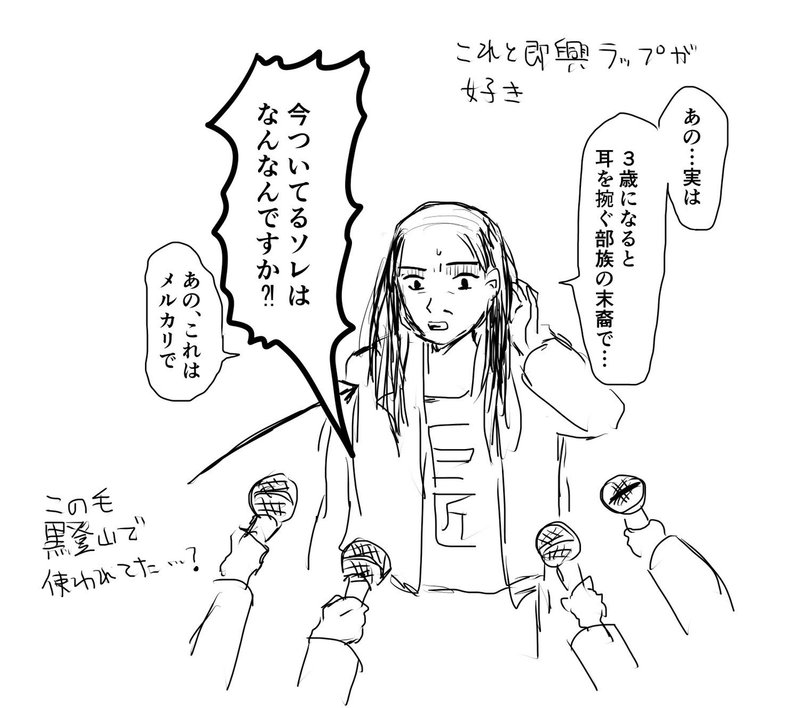 これと即興ラップが
好き
あの…実は
３歳になると
耳を捥ぐ部族の末裔で…
今ついてるソレは
なんなんですか⁈
あの、これは
メルカリで
巨匠
この毛
黒登山で
使われてた…？